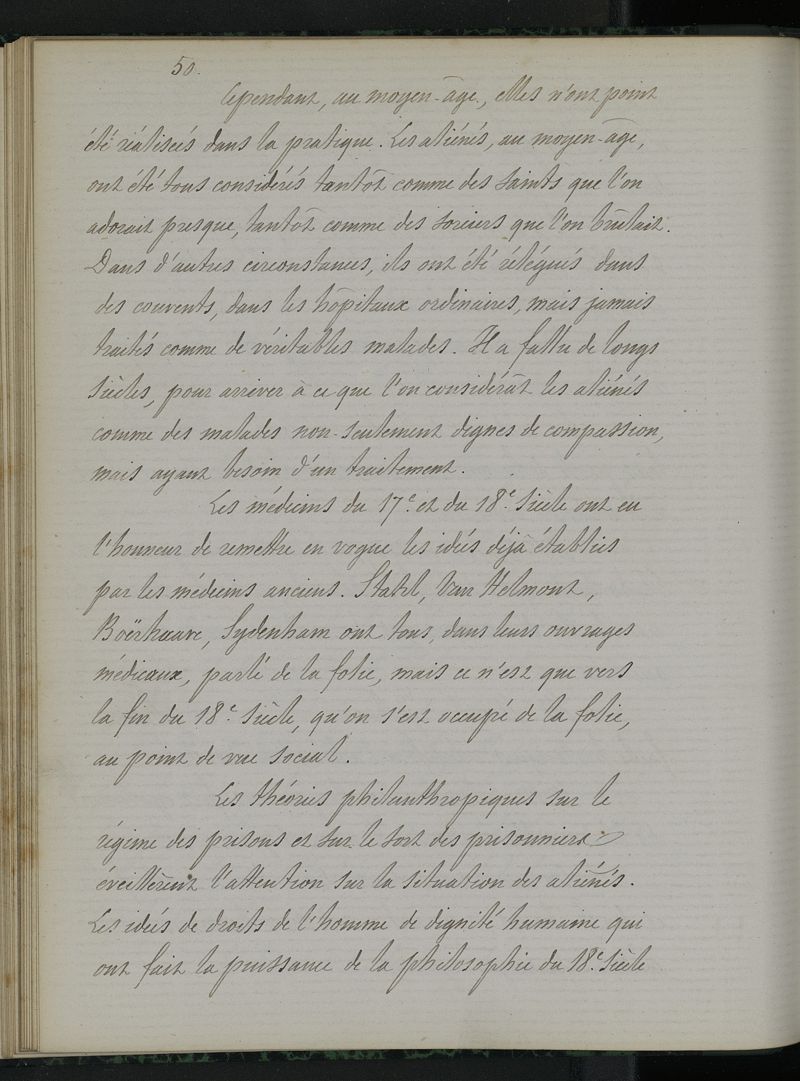 50.
Cependant, au moyen-âge, elles n'ont point
été réalisées dans la pratique. Les aliénés, au moyen-âge,
ont été tous considérés tantôt comme des saints que l'on
adorait presque, tantôt comme des sorciers que l'on brûlait.
Dans d'autres circonstances, ils ont été rélégués dans
des couvents, dans les hôpitaux ordinaires, mais jamais
traités comme de véritables malades. Il a fallu de longs
siècles, pour arriver à ce que l'on considérât les aliénés
comme des malades non-seulement dignes de compassion,
mais ayant besoin d'un traitement.
Les médecins du 17e. et du 18e. siècle ont eu
l'honneur de remettre en vogue les idées déjà établies
par les médecins anciens. Stahl, Van Helmont,
Boërhaave, Sydenham ont tous, dans leurs ouvrages
médicaux, parlé de la folie, mais ce n'est que vers
la fin du 18e. siècle, qu'on s'est occupé de la folie,
au point de vue social.
Les théories philanthropiques sur le
régime des prisons et sur le sort des prisonniers
éveillèrent l'attention sur la situation des aliénés.
Les idées de droits de l'homme de dignité humaine qui
ont fait la puissance de la philosophie du 18e. siècle